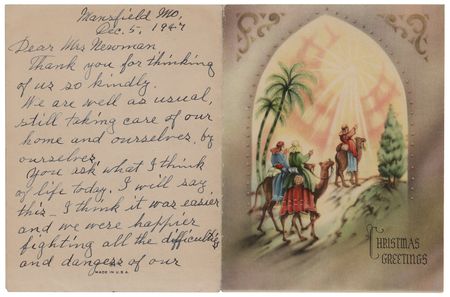 Mansfield Mo,
Dec. 5, 1947
Dear Mrs Newman
Thank you for thinking
of us so kindly.
We are well as usual,
still taking care of our
home and ourselves, by
ourselves.
You ask what I think
of life today, I will say
this – I think it was easier
and we were happier
fighting all the difficulties
and dangers of our
MADE IN U.S.A.
CHRISTMAS
GREETINGS